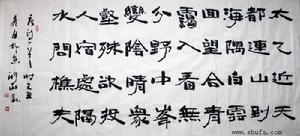 太乙近天
都連山到
海隅白雲
回望合青
靄入看無
分野中峯
變陰晴衆
壑殊欲投
人處宿隔
水問樵夫
www.shufa.com